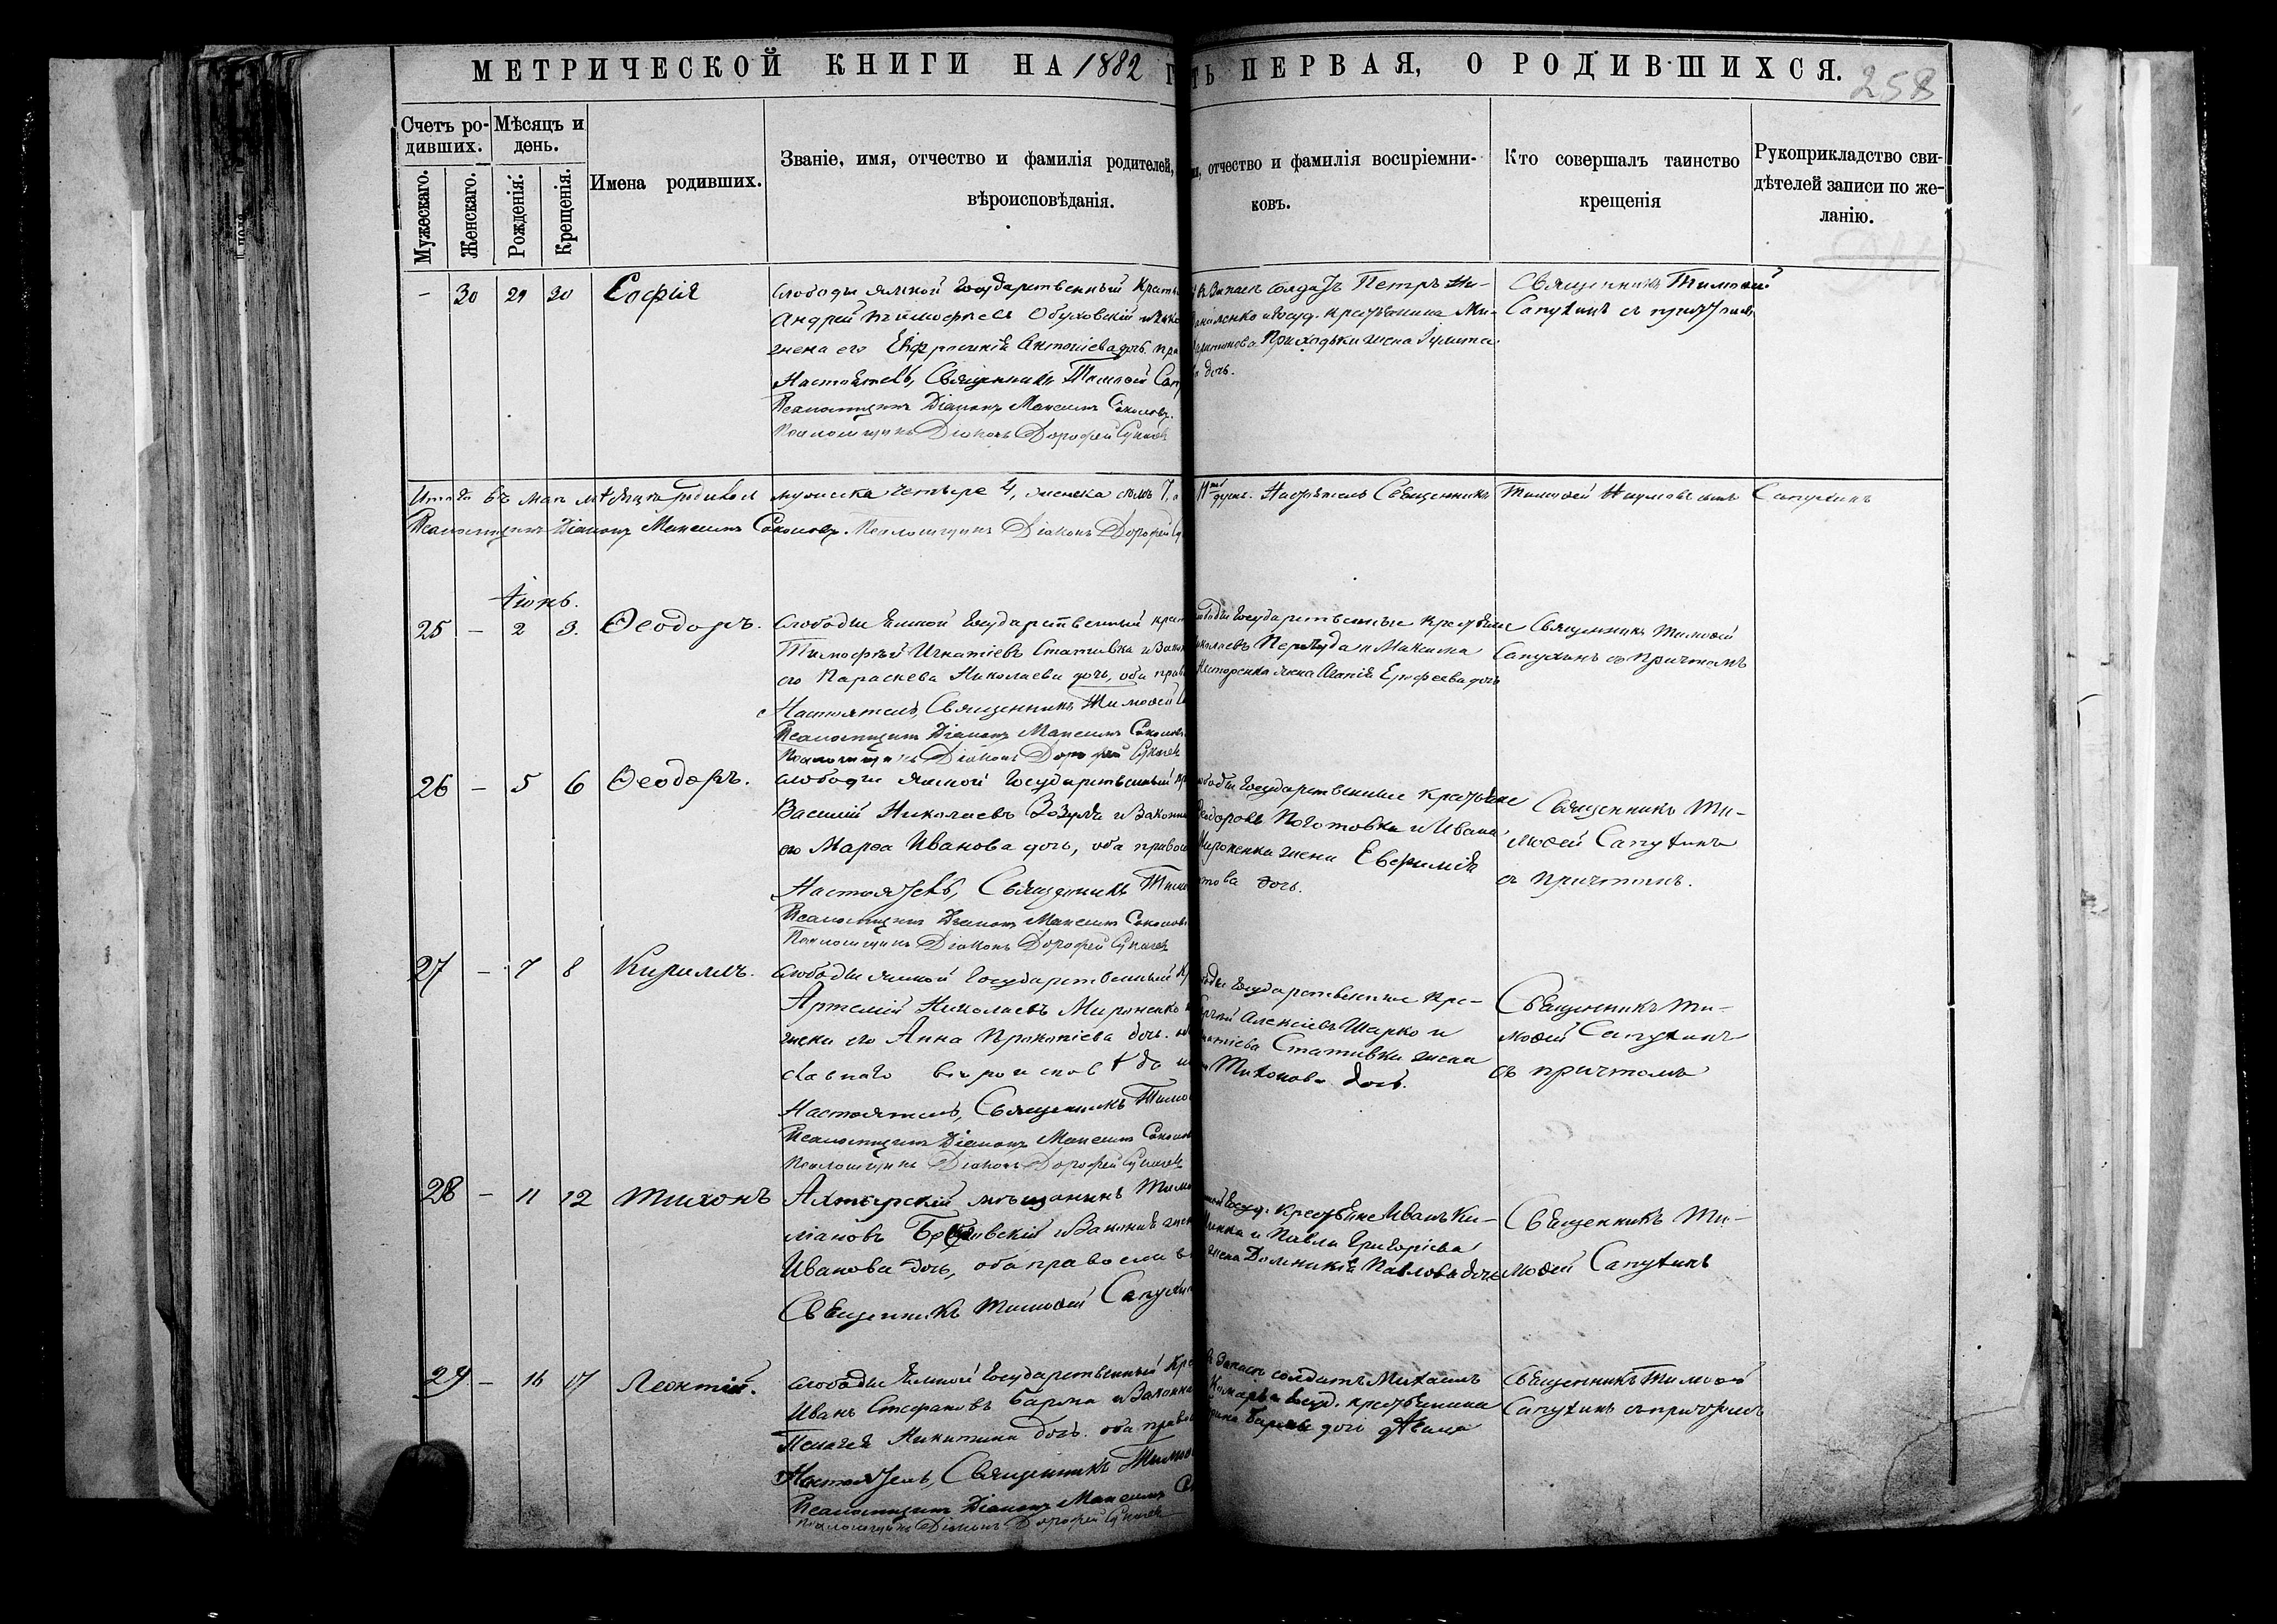 МЕТРИЧЕСКОЙ КНИГИ НА 1882 Г
ТЬ ПЕРВАЯ, О РОДИВШИХСЯ.
258
Счетъ ро-
дивших.
Мѣсяцъ и
день.
Мужескаго.
Женскаго.
Рожденія.
Крещенія.
Имена родивших.
Званіе, имя, отчество и фамилія родителей,
вѣроисповѣданія.
отчество и фамилія воспріемни-
ковъ.
Кто совершалъ таинство
крещенія
Рукоприкладство сви-
дѣтелей записи по же-
ланію.
- 30 29 30 Софія
слободы Ямной Государственный Крест
Андрей Тимофеевъ Обуховскій и
жена его Евфросинія Антоніева дочь.
Настоятель, Священникъ Тимоѳей Сап
Псаломщикъ Діаконъ Максимъ Соколовъ.
Псаломщикъ Діаконъ Дорофей
солдатъ Петръ
Государ. крестьянина Ми-
Приходьки жена Іулита
дочь.
Священникъ Тимоѳей
Сапухинъ съ причтомъ
Итого въ маѣ мѣсяцѣ родилось мужеска четыре 4, женска семь 7,
Псаломщикъ Діаконъ Максимъ Соколовъ. Псаломщикъ Діаконъ Дорофей
11 душъ. Настоятель Священникъ Тимоѳей Наумовъ сынъ Сапухинъ
Іюнь.
25 - 2 3. Ѳеодоръ.
слободы Ямной Государственный крест
Тимофѣй Игнатіевъ Стативка и Закон
его Параскева Николаева дочь, оба прав
Настоятель, Священникъ Тимоѳей
Псаломщикъ Діаконъ Максимъ Соколовъ
Псаломщикъ Діаконъ Дорофей
слободы Государственные Крестьяне
Николаевъ и Максима
Несторенка жена Агапія Ерофеева дочь
Священникъ Тимоѳей
Сапухинъ съ Причтомъ
26 - 5 6 Ѳеодоръ.
слободы Ямной Государственный кр
Василій Николаевъ Зозуля и Законна
его Марѳа Иванова дочь, оба правос
Настоятель, Священникъ Тимо
Псаломщикъ Діаконъ Максимъ Соколовъ
Псаломщикъ Діаконъ Дорофей
слободы Государственные Крестьяне
Ѳеодоровъ и Ивана
Мироненка жена Евфимія
това дочь.
Священникъ Ти-
моѳей Сапухинъ
съ Причтомъ.
27 - 7 8 Кириллъ.
слободы Ямной Государственный Кр
Артемій Николаевъ Мироненко
жена его Анна Прокопіева дочь.
славнаго вѣроисповѣда
Настоятель, Священникъ Тимо
Псаломщикъ Діаконъ Максимъ Соколовъ
Псаломщикъ Діаконъ Дорофей
Государственные Кре-
Алексіевъ Шарко и
Игнатіева Стативки жена
Тихонова дочь.
Священникъ Ти-
моѳей Сапухинъ
съ причтомъ
28 - 11 12 Тихонъ
Ахтырскій мѣщанинъ Тимо
и Законная жен
Иванова дочь, оба правосла
Священникъ Тимоѳей Сапухи
Госуд. Крестьяне Иванъ Ки-
и Павла Григоріева
жена Домникія Павлова дочь
Священникъ Ти-
моѳей Сапухинъ
29 - 16 17 Леонтій.
слободы Ямной Государственный Кре
Иванъ Стефановъ и Законна
Пелагея Никитина дочь. оба правос
Настоятель, Священникъ Тимоѳ
Псаломщикъ Діаконъ Максимъ Со
Псаломщикъ Діаконъ Дорофей
запасъ солдатъ Михаилъ
Госуд. крестьянина
дочь дѣвица
Священникъ Тимоѳей
Сапухинъ съ причтомъ